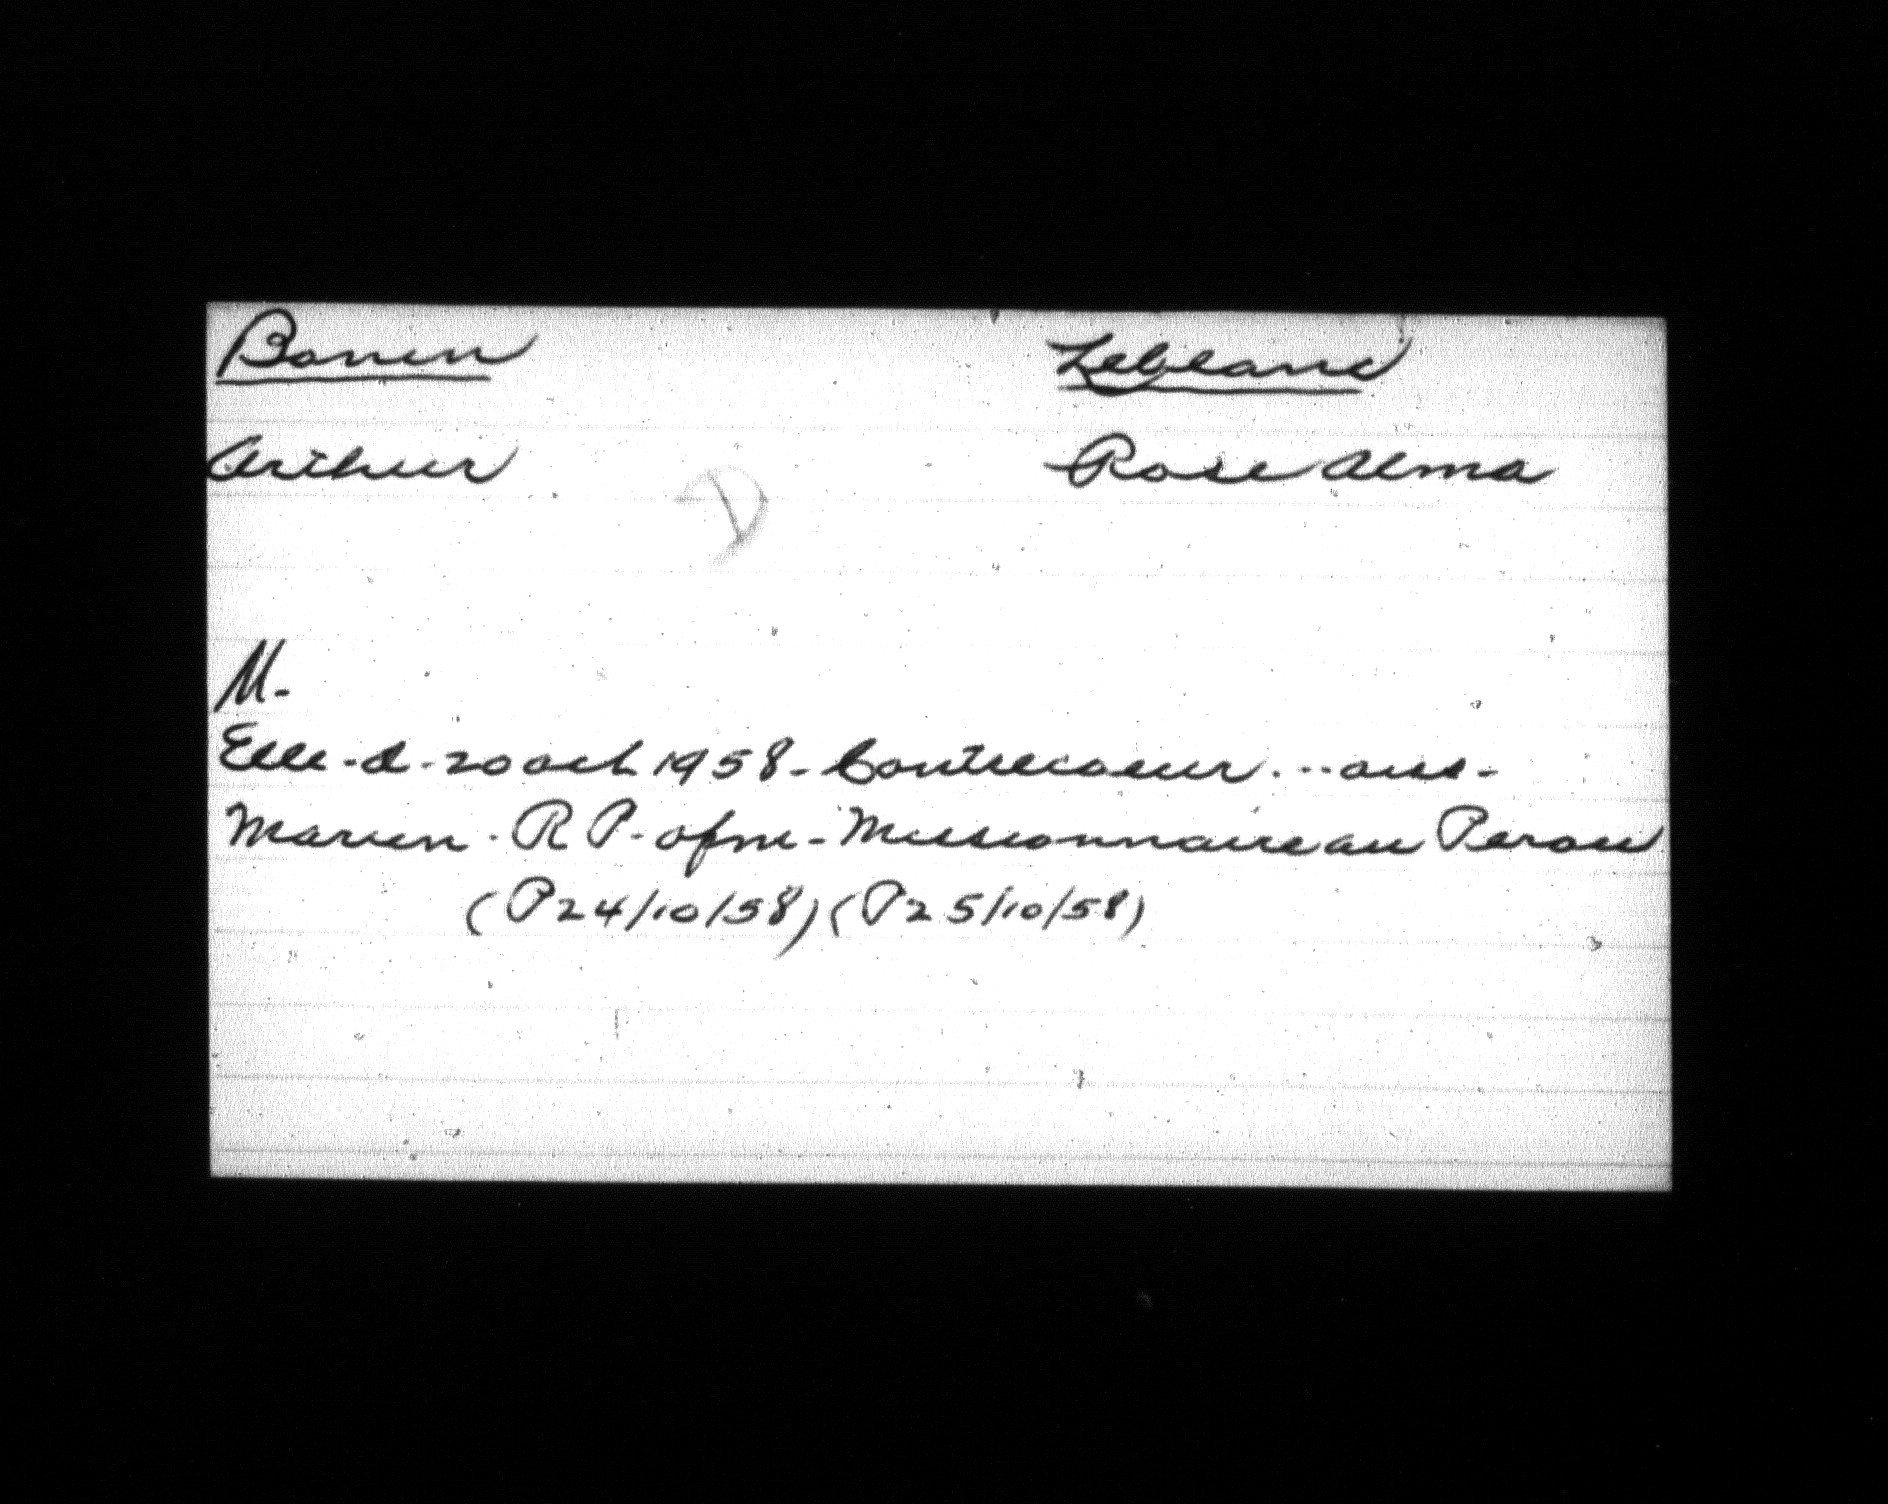 Bonin Leblanc
Arthur Rose Alma
D
M.
Elle - d - 20 oct 1958 - Contrecoeur ... ans -
Marien - R P - ofm - Missionnaire au Perou
(P 24/10/58) (P 25/10/58)